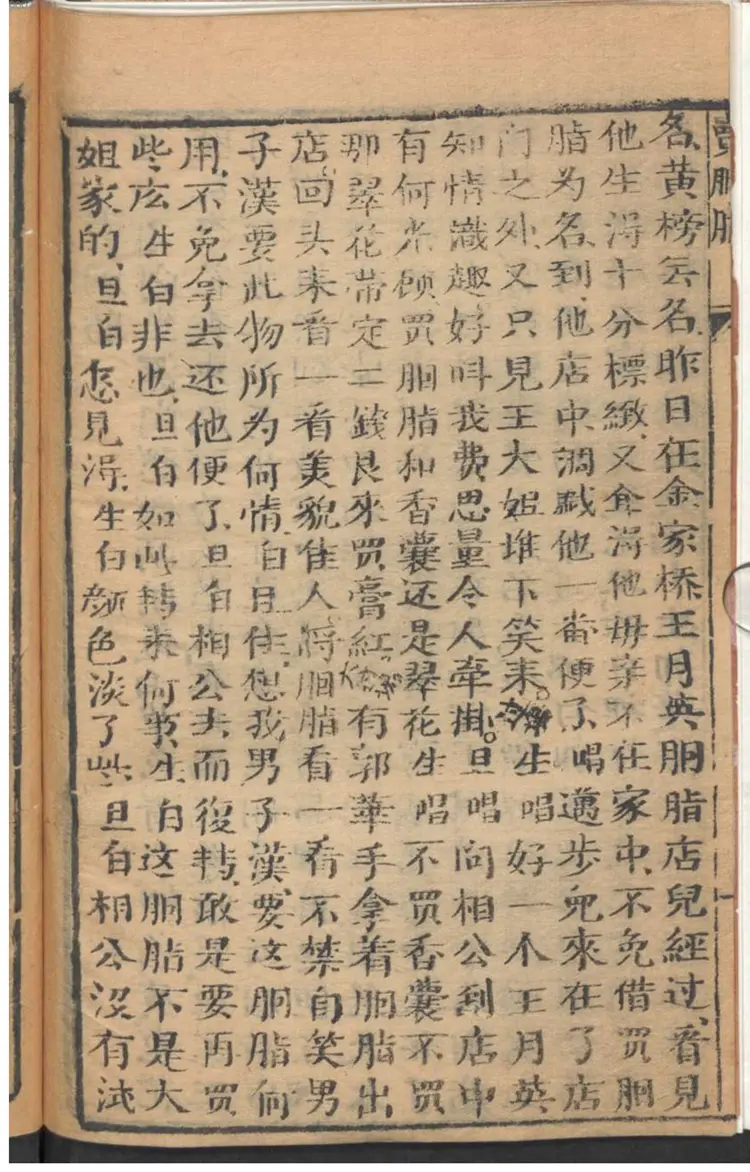 賣胭脂
名黄榜無名昨日在金家橋王月英胭脂店兒經过看見
他生得十分標緻又會得他母亲不在家中不免借買胭
脂为名到他店中調戯他一番便了唱邁步兒來在了店
门之处又只見王大姐堆下笑来生唱好一个王月英
知情識趣好呌我费思量令人牵掛旦唱问相公到店中
有何光顾買胭脂和香囊还是翠花生唱不買香囊不買
那翠花带定二錢艮來買膏紅有郭華手拿着胭脂出
店回头来看一看美貌佳人将胭脂看一看不禁自笑男
子漢要此物所为何情白且住想我男子漢要这胭脂何
用不免拿去还他便了旦白相公去而復轉敢是要再買
些庅生白非也旦白如此轉来何事生白这胭脂不是大
姐家的旦白怎見得生白颜色淡了些旦白相公沒有試